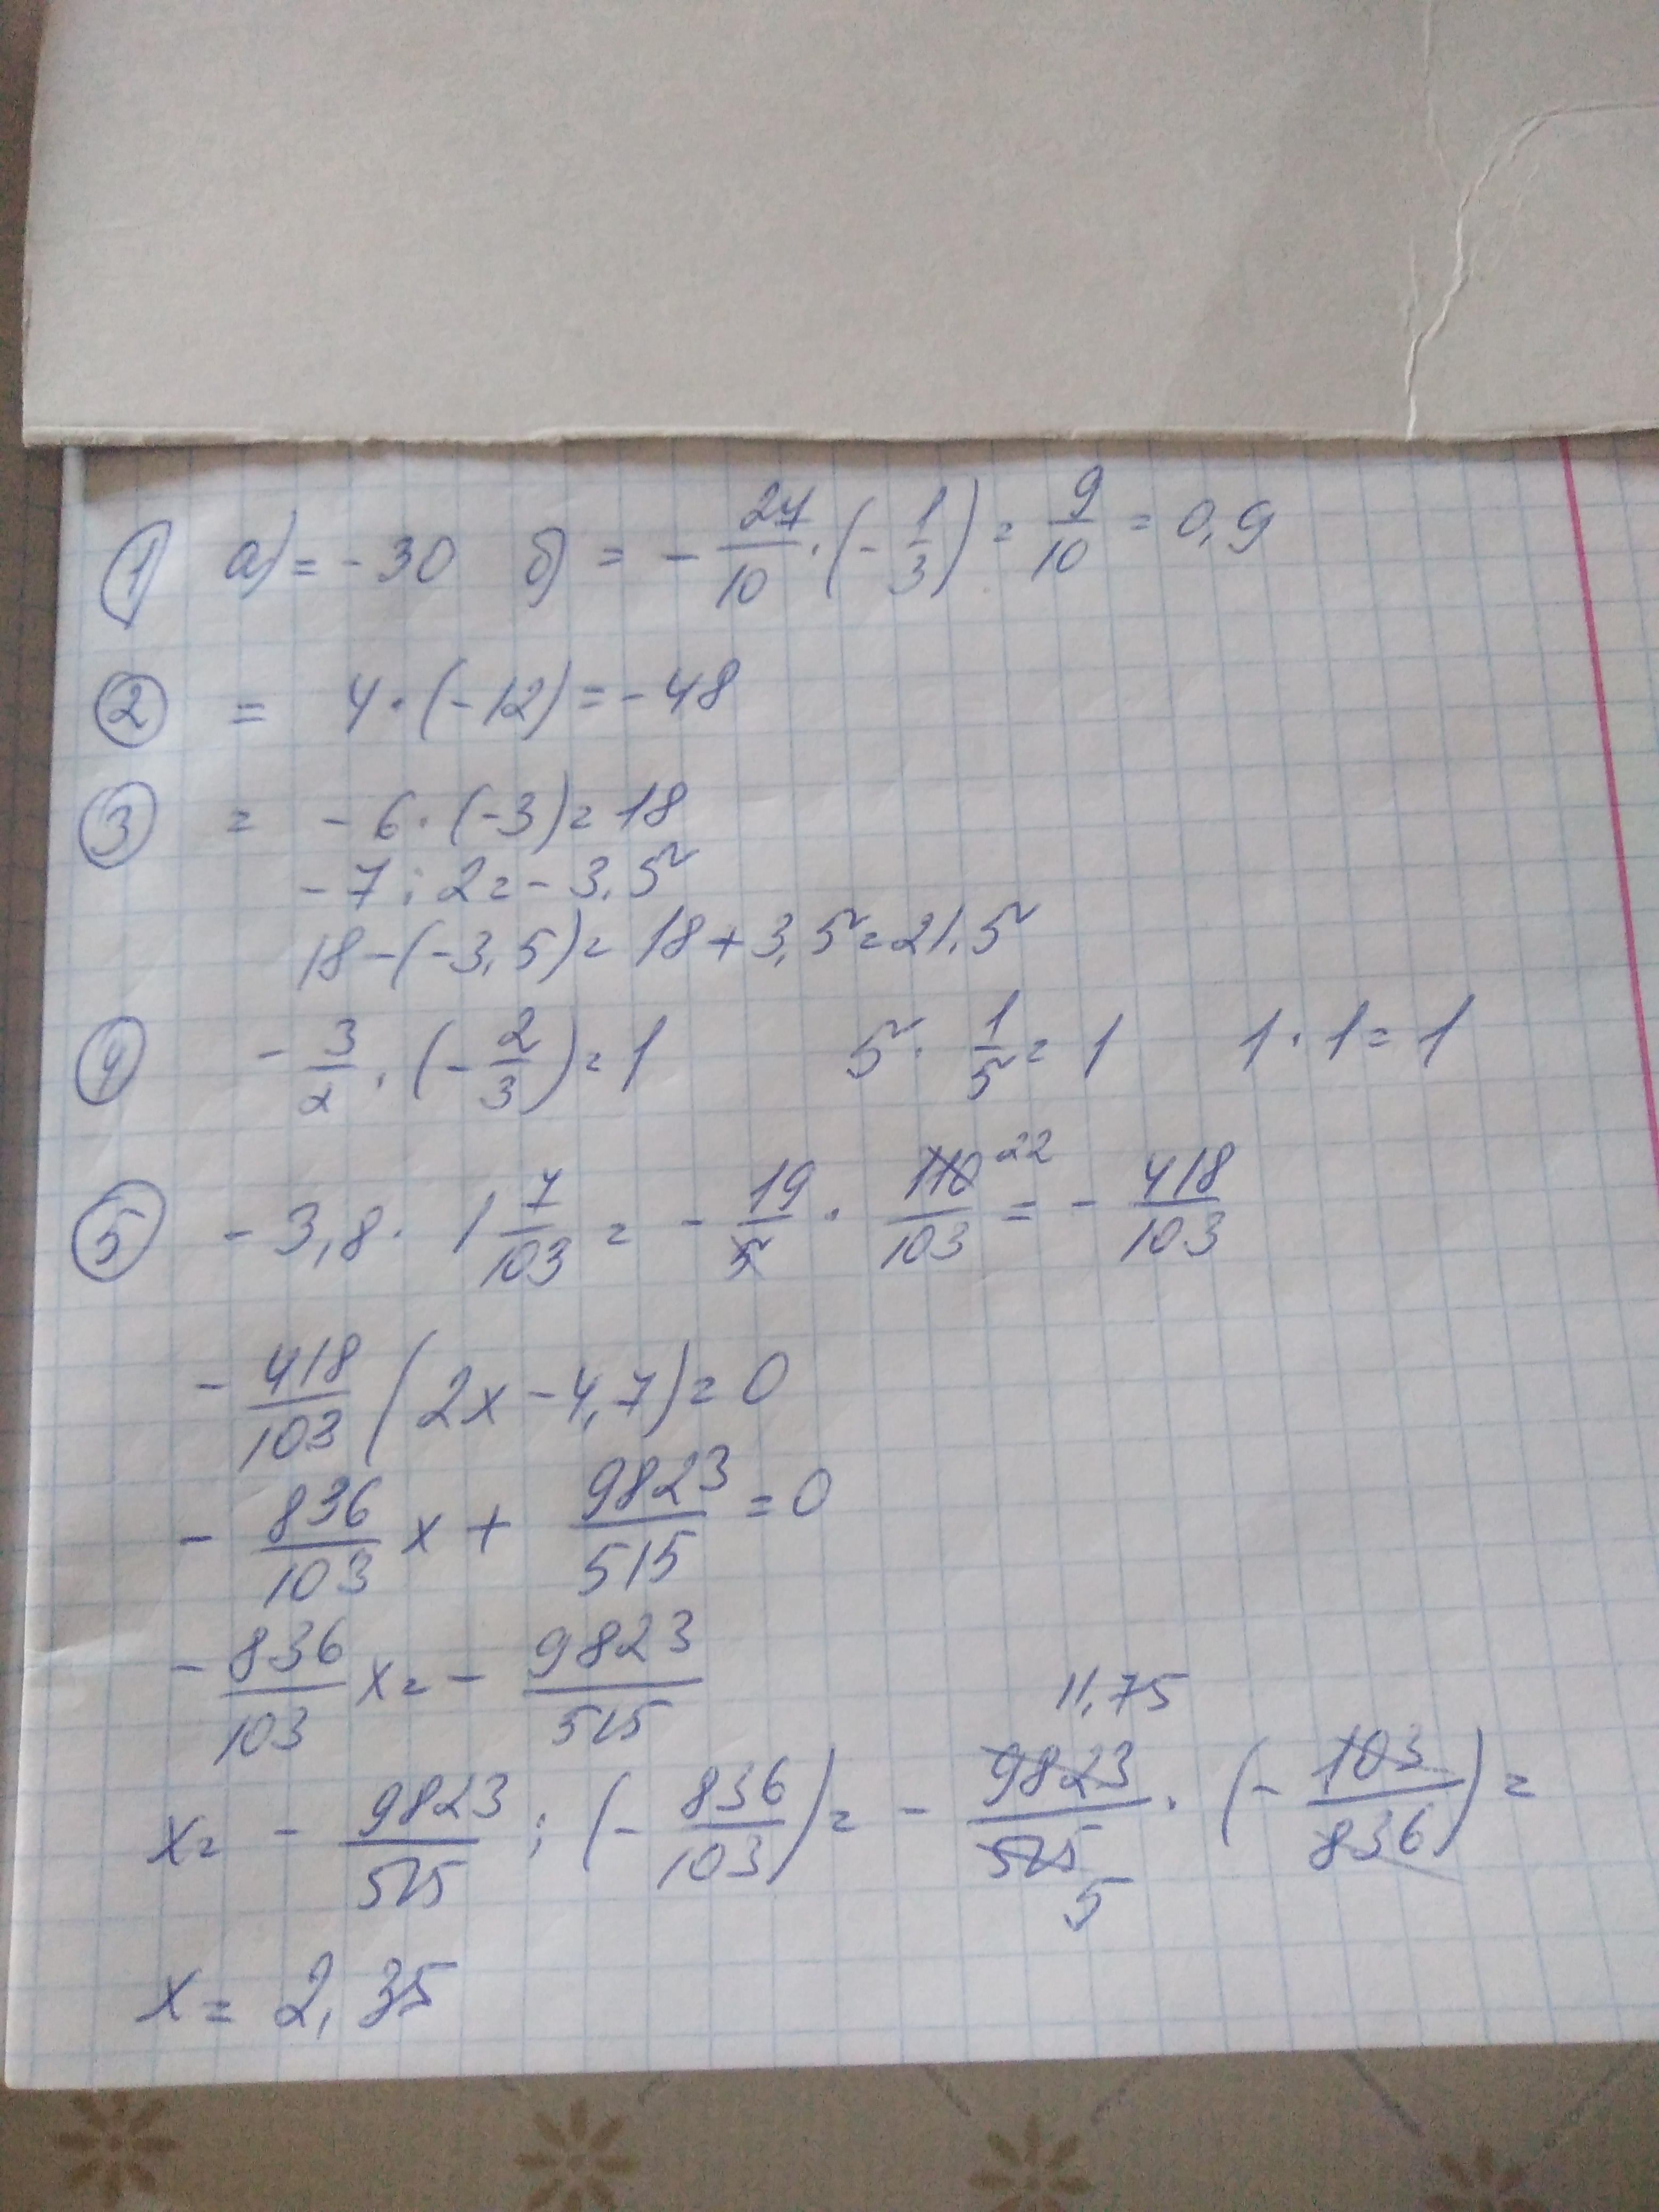 1 а) = - 30 б) = - 27/10 · (- 1/3) = 9/10 = 0,9
2 = 4 · (-12) = - 48
3 = - 6 · (-3) = 18
- 7 : 2 = - 3,5
18 - (-3,5) = 18 + 3,5 = 21,5
4 - 3/2 · (- 2/3) = 1 5 · 1/5 = 1 1 · 1 = 1
5 - 3,8 · 1 7/103 = - 19/5 · 110/103 22 = - 418/103
- 418/103 (2x - 4,7) = 0
- 836/103 x + 9823/515 = 0
- 836/103 x = - 9823/515
11,75
x = - 9823/515 : (- 836/103) = - 9823/515 · (- 103/836) =
5
x = 2,35